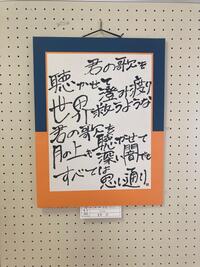 君の歌を
聴かせて 澄み渡り
世界 救うような
君の歌を 聴かせて
月の上も 深い闇でも
すべては 思い通り